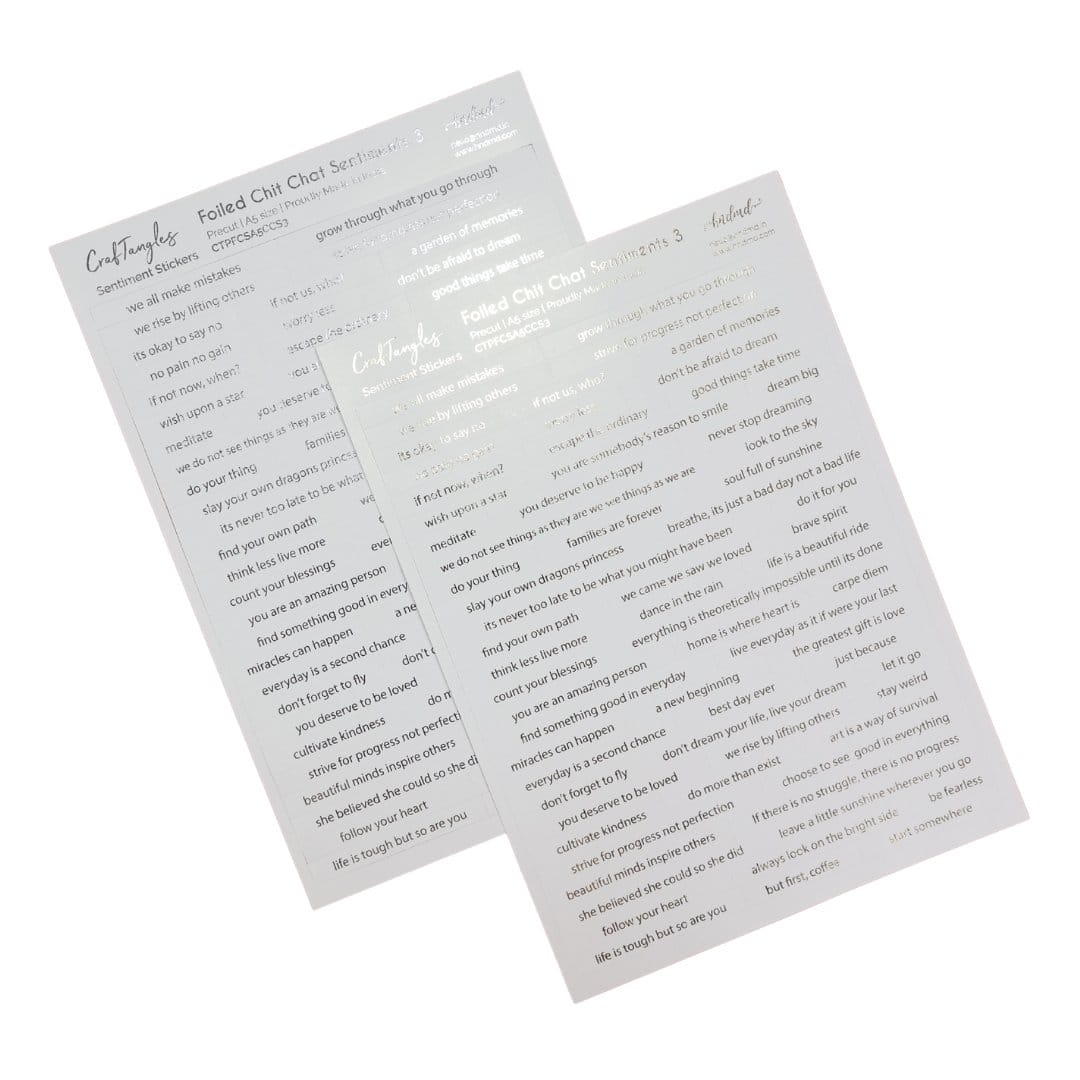 CrafTangles
Sentiment Stickers
Foiled Chit Chat Sentiments 3
Precut | A5 size | Proudly Made
CTPFCSA5CCS3
hndmd
www.hndmd.com
we all make mistakes
we rise by lifting others
its okay to say no
no pain no gain
if not now, when?
wish upon a star
meditate
we do not see things as they are we
do your thing
slay your own dragons princess
its never too late to be what
find your own path
think less live more
count your blessings
you are an amazing person
find something good in every
miracles can happen
everyday is a second chance
don't forget to fly
you deserve to be loved
cultivate kindness
strive for progress not perfecti
beautiful minds inspire others
she believed she could so she did
follow your heart
life is tough but so are you
if not us, who?
worry less
escape the ordinary
you a
you deserve to
families
we
eve
a ne
don't
do m
grow through what you go through
strive for progress not perfection
a garden of memories
don't be afraid to dream
good things take time
CrafTangles
Sentiment Stickers
Foiled Chit Chat Sentiments 3
Precut | A5 size | Proudly Made
CTPFCSA5CCS3
hndmd
www.hndmd.com
we all make mistakes
we rise by lifting others
its okay to say no
no pain no gain
if not now, when?
wish upon a star
meditate
we do not see things as they are we see things as we are
do your thing
slay your own dragons princess
its never too late to be what you might have been
find your own path
think less live more
count your blessings
you are an amazing person
find something good in everyday
miracles can happen
everyday is a second chance
don't forget to fly
you deserve to be loved
cultivate kindness
strive for progress not perfection
beautiful minds inspire others
she believed she could so she did
follow your heart
life is tough but so are you
if not us, who?
worry less
escape the ordinary
you are somebody's reason to smile
you deserve to be happy
families are forever
breathe, its just a bad day not a bad life
we came we saw we loved
dance in the rain
everything is theoretically impossible until its done
home is where heart is
a new beginning
best day ever
live everyday as it if were your last
don't dream your life, live your dream
we rise by lifting others
do more than exist
grow through what you go through
strive for progress not perfection
a garden of memories
don't be afraid to dream
good things take time
dream big
never stop dreaming
look to the sky
soul full of sunshine
do it for you
brave spirit
life is a beautiful ride
carpe diem
the greatest gift is love
just because
let it go
stay weird
art is a way of survival
choose to see good in everything
If there is no struggle, there is no progress
leave a little sunshine wherever you go
always look on the bright side
be fearless
but first, coffee
start somewhere